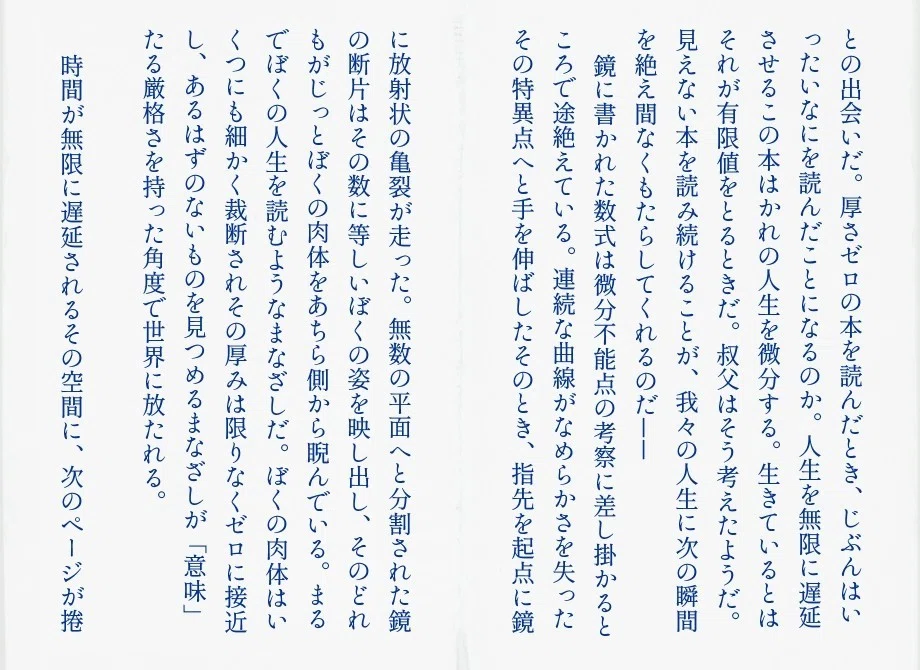 との出会いだ。厚さゼロの本を読んだとき、じぶんはい
ったいなにを読んだことになるのか。人生を無限に遅延
させるこの本はかれの人生を微分する。生きているとは
それが有限値をとるときだ。叔父はそう考えたようだ。
見えない本を読み続けることが、我々の人生に次の瞬間
を絶え間なくもたらしてくれるのだ――
鏡に書かれた数式は微分不能点の考察に差し掛かると
ころで途絶えている。連続な曲線がなめらかさを失った
その特異点へと手を伸ばしたそのとき、指先を起点に鏡
に放射状の亀裂が走った。無数の平面へと分割された鏡
の断片はその数に等しいぼくの姿を映し出し、そのどれ
もがじっとぼくの肉体をあちら側から睨んでいる。まる
でぼくの人生を読むようなまなざしだ。ぼくの肉体はい
くつにも細かく裁断されその厚みは限りなくゼロに接近
し、あるはずのないものを見つめるまなざしが「意味」
たる厳格さを持った角度で世界に放たれる。
時間が無限に遅延されるその空間に、次のページが捲